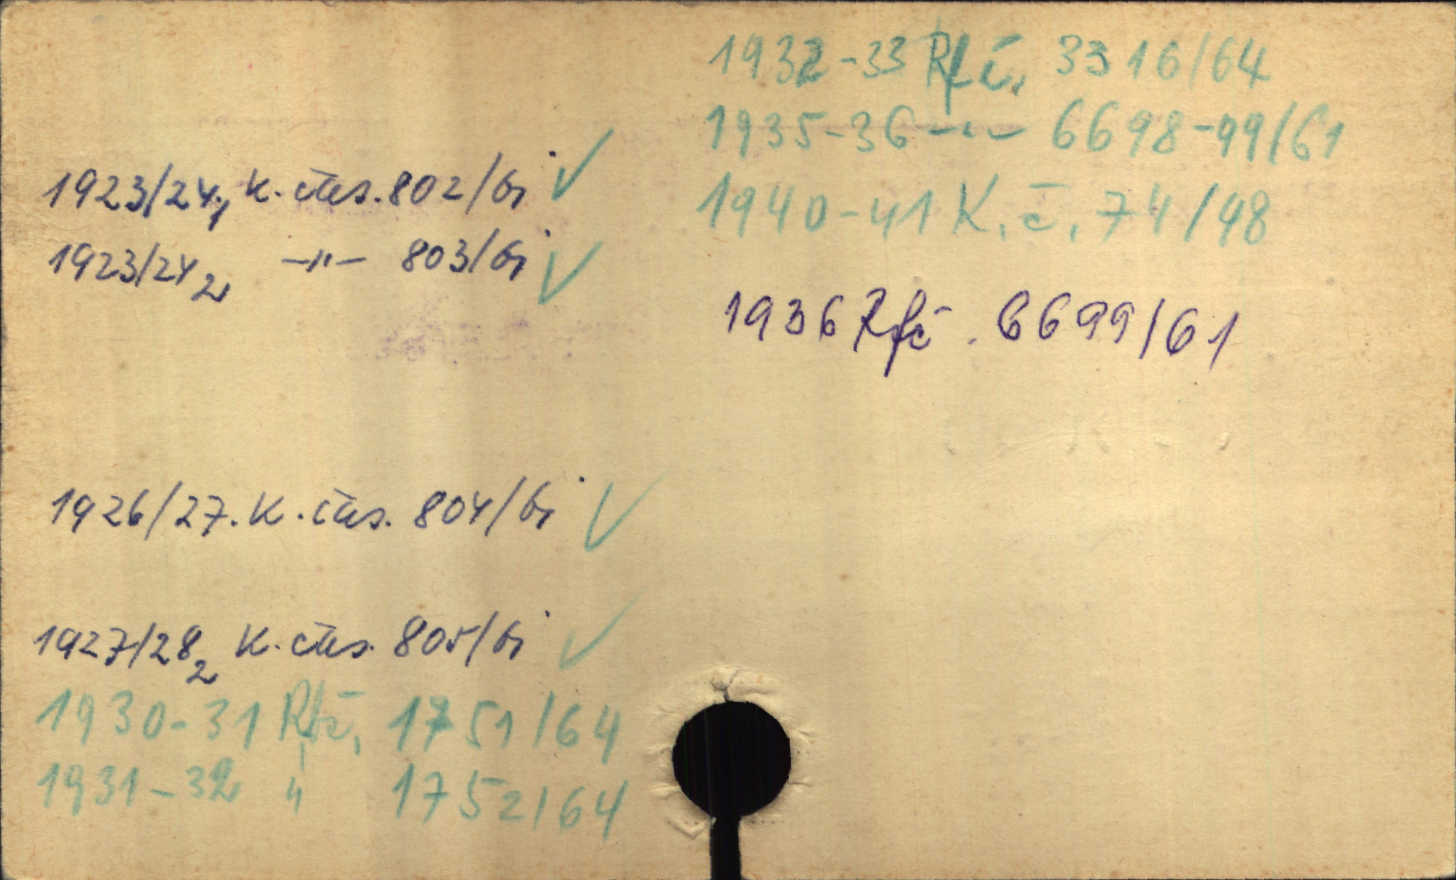 1923/24,1 K. čas. 802/61 ✓
1923/24 2 -"- 803/61 ✓
1926/27. K. čas. 804/61 ✓
1927/28 2 K. čas. 805/61 ✓
1930-31 Rfč. 1751/64
1931-32 " 1752/64
1932-33 Rfč. 3316/64
1935-36 -"- 6698-99/61
1940-41 K. č. 74/48
1936 Rfč. 6699/61